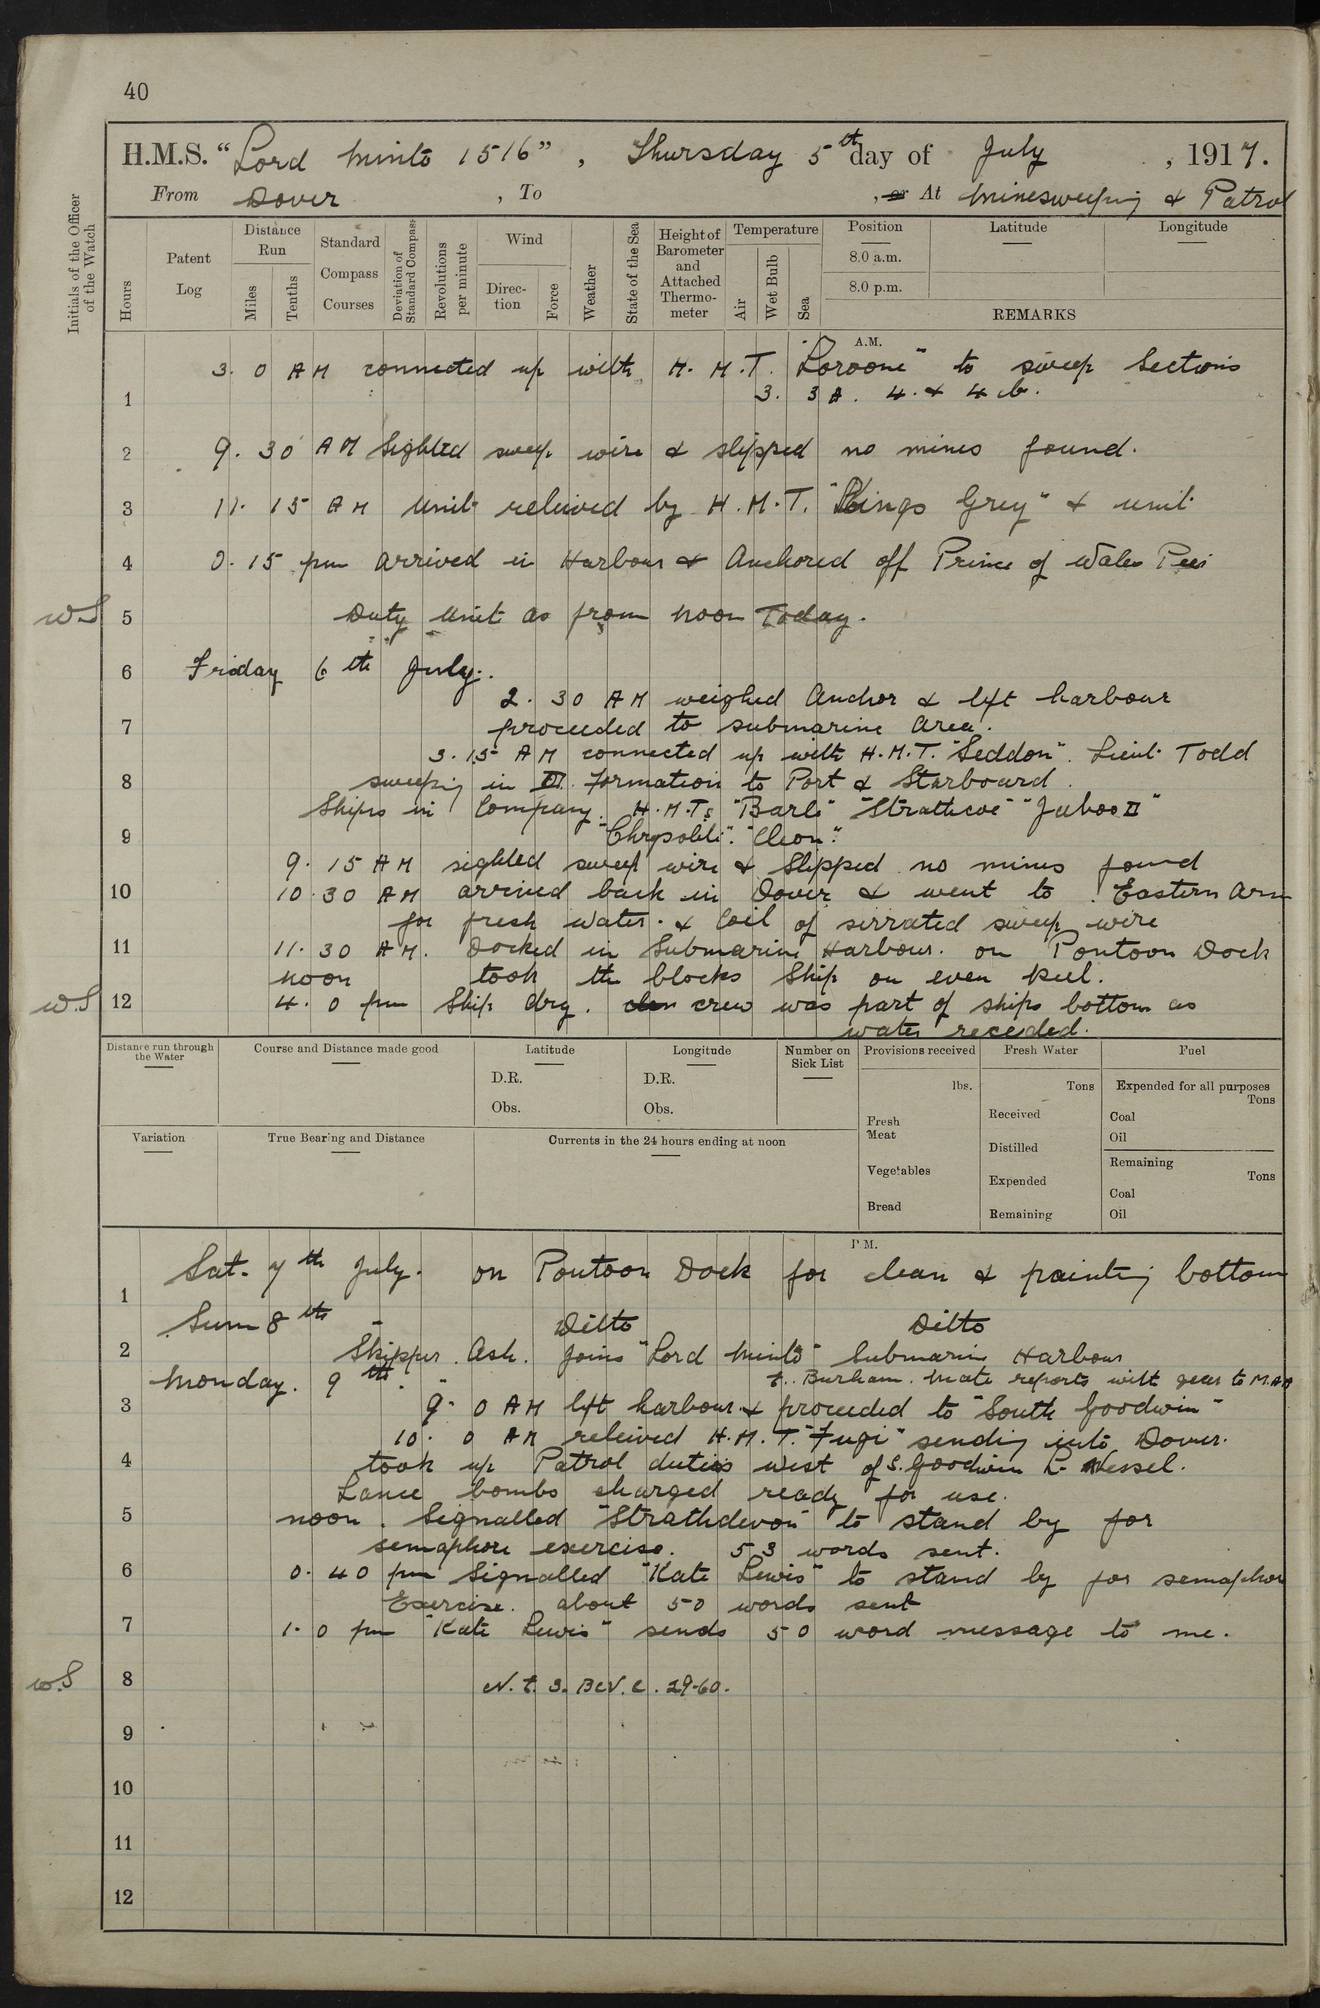 40
H.M.S. "Lord Minto 1516", Thursday 5th day of July, 1917.
From Dover, To , or At Minesweeping & Patrol
Initials of the Officer of the Watch
Hours
Patent Log
Distance Run
Miles
Tenths
Standard Compass Courses
Deviation of Standard Compass
Revolutions per minute
Wind
Direction
Force
Weather
State of the Sea
Height of Barometer and Attached Thermometer
Temperature
Air
Wet Bulb
Sea
Position
Latitude
Longitude
8.0 a.m.
8.0 p.m.
REMARKS
A.M.
3. 0 AM connected up with H.M.T. "Loroone" to sweep Sections
1
3. 3A. 4. & 4 b.
2 9. 30 AM Sighted sweep wire & slipped no mines found.
3 11. 15 AM Unit releived by H.M.T. "Kings Grey" & unit
4 0. 15 pm arrived in Harbour & Anchored off Prince of Wales Pier
W.S 5 Duty Unit as from noon Today.
6 Friday 6th July.
2. 30 AM weighed Anchor & left harbour
7 proceeded to submarine area.
3. 15 AM connected up with H.M.T. "Seddon". Lieut. Todd
8 sweeping in formation to Port & Starboard.
Ships in Company. H.M.Ts "Barle" "Strathcoe" "Jubos II"
9 "Chrysolite". "Cleon".
9. 15 AM sighted sweep wire & slipped no mines found
10 10. 30 AM arrived back in Dover & went to Eastern Arm
for fresh water. & Coil of serrated sweep wire
11 11. 30 AM. Docked in Submarine Harbour. on Pontoon Dock
noon took the blocks Ship on even keel.
W.S 12 4. 0 pm Ship dry. crew was part of ships bottom as
water receeded.
Distance run through the Water
Course and Distance made good
Latitude
D.R.
Obs.
Longitude
D.R.
Obs.
Number on Sick List
Provisions received
lbs.
Fresh Meat
Vegetables
Bread
Fresh Water
Tons
Received
Distilled
Expended
Remaining
Fuel
Expended for all purposes
Tons
Coal
Oil
Remaining
Tons
Coal
Oil
Variation
True Bearing and Distance
Currents in the 24 hours ending at noon
P.M.
Sat. 7th July. on Pontoon Dock for clean & painting bottom
1
Sun 8th Ditto Ditto
2 Skipper. Ash. joins "Lord Minto" Submarine Harbour
Monday. 9th " " t. Burham. Mate reports with gear to
3 9. 0 AM left harbour & proceeded to "South Goodwin"
10. 0 AM releived H.M.T. "Fugi" sending into Dover.
4 took up Patrol duties west of S. Goodwin L. Vessel.
Lance bombs charged ready for use.
5 noon. Signalled "Strathdevon" to stand by for
semaphore exercise. 53 words sent.
6 0. 40 pm Signalled "Kate Lewis" to stand by for semaphore
Exercise. about 50 words sent
7 1. 0 pm "Kate Lewis" sends 50 word message to me.
W.S 8
9
10
11
12